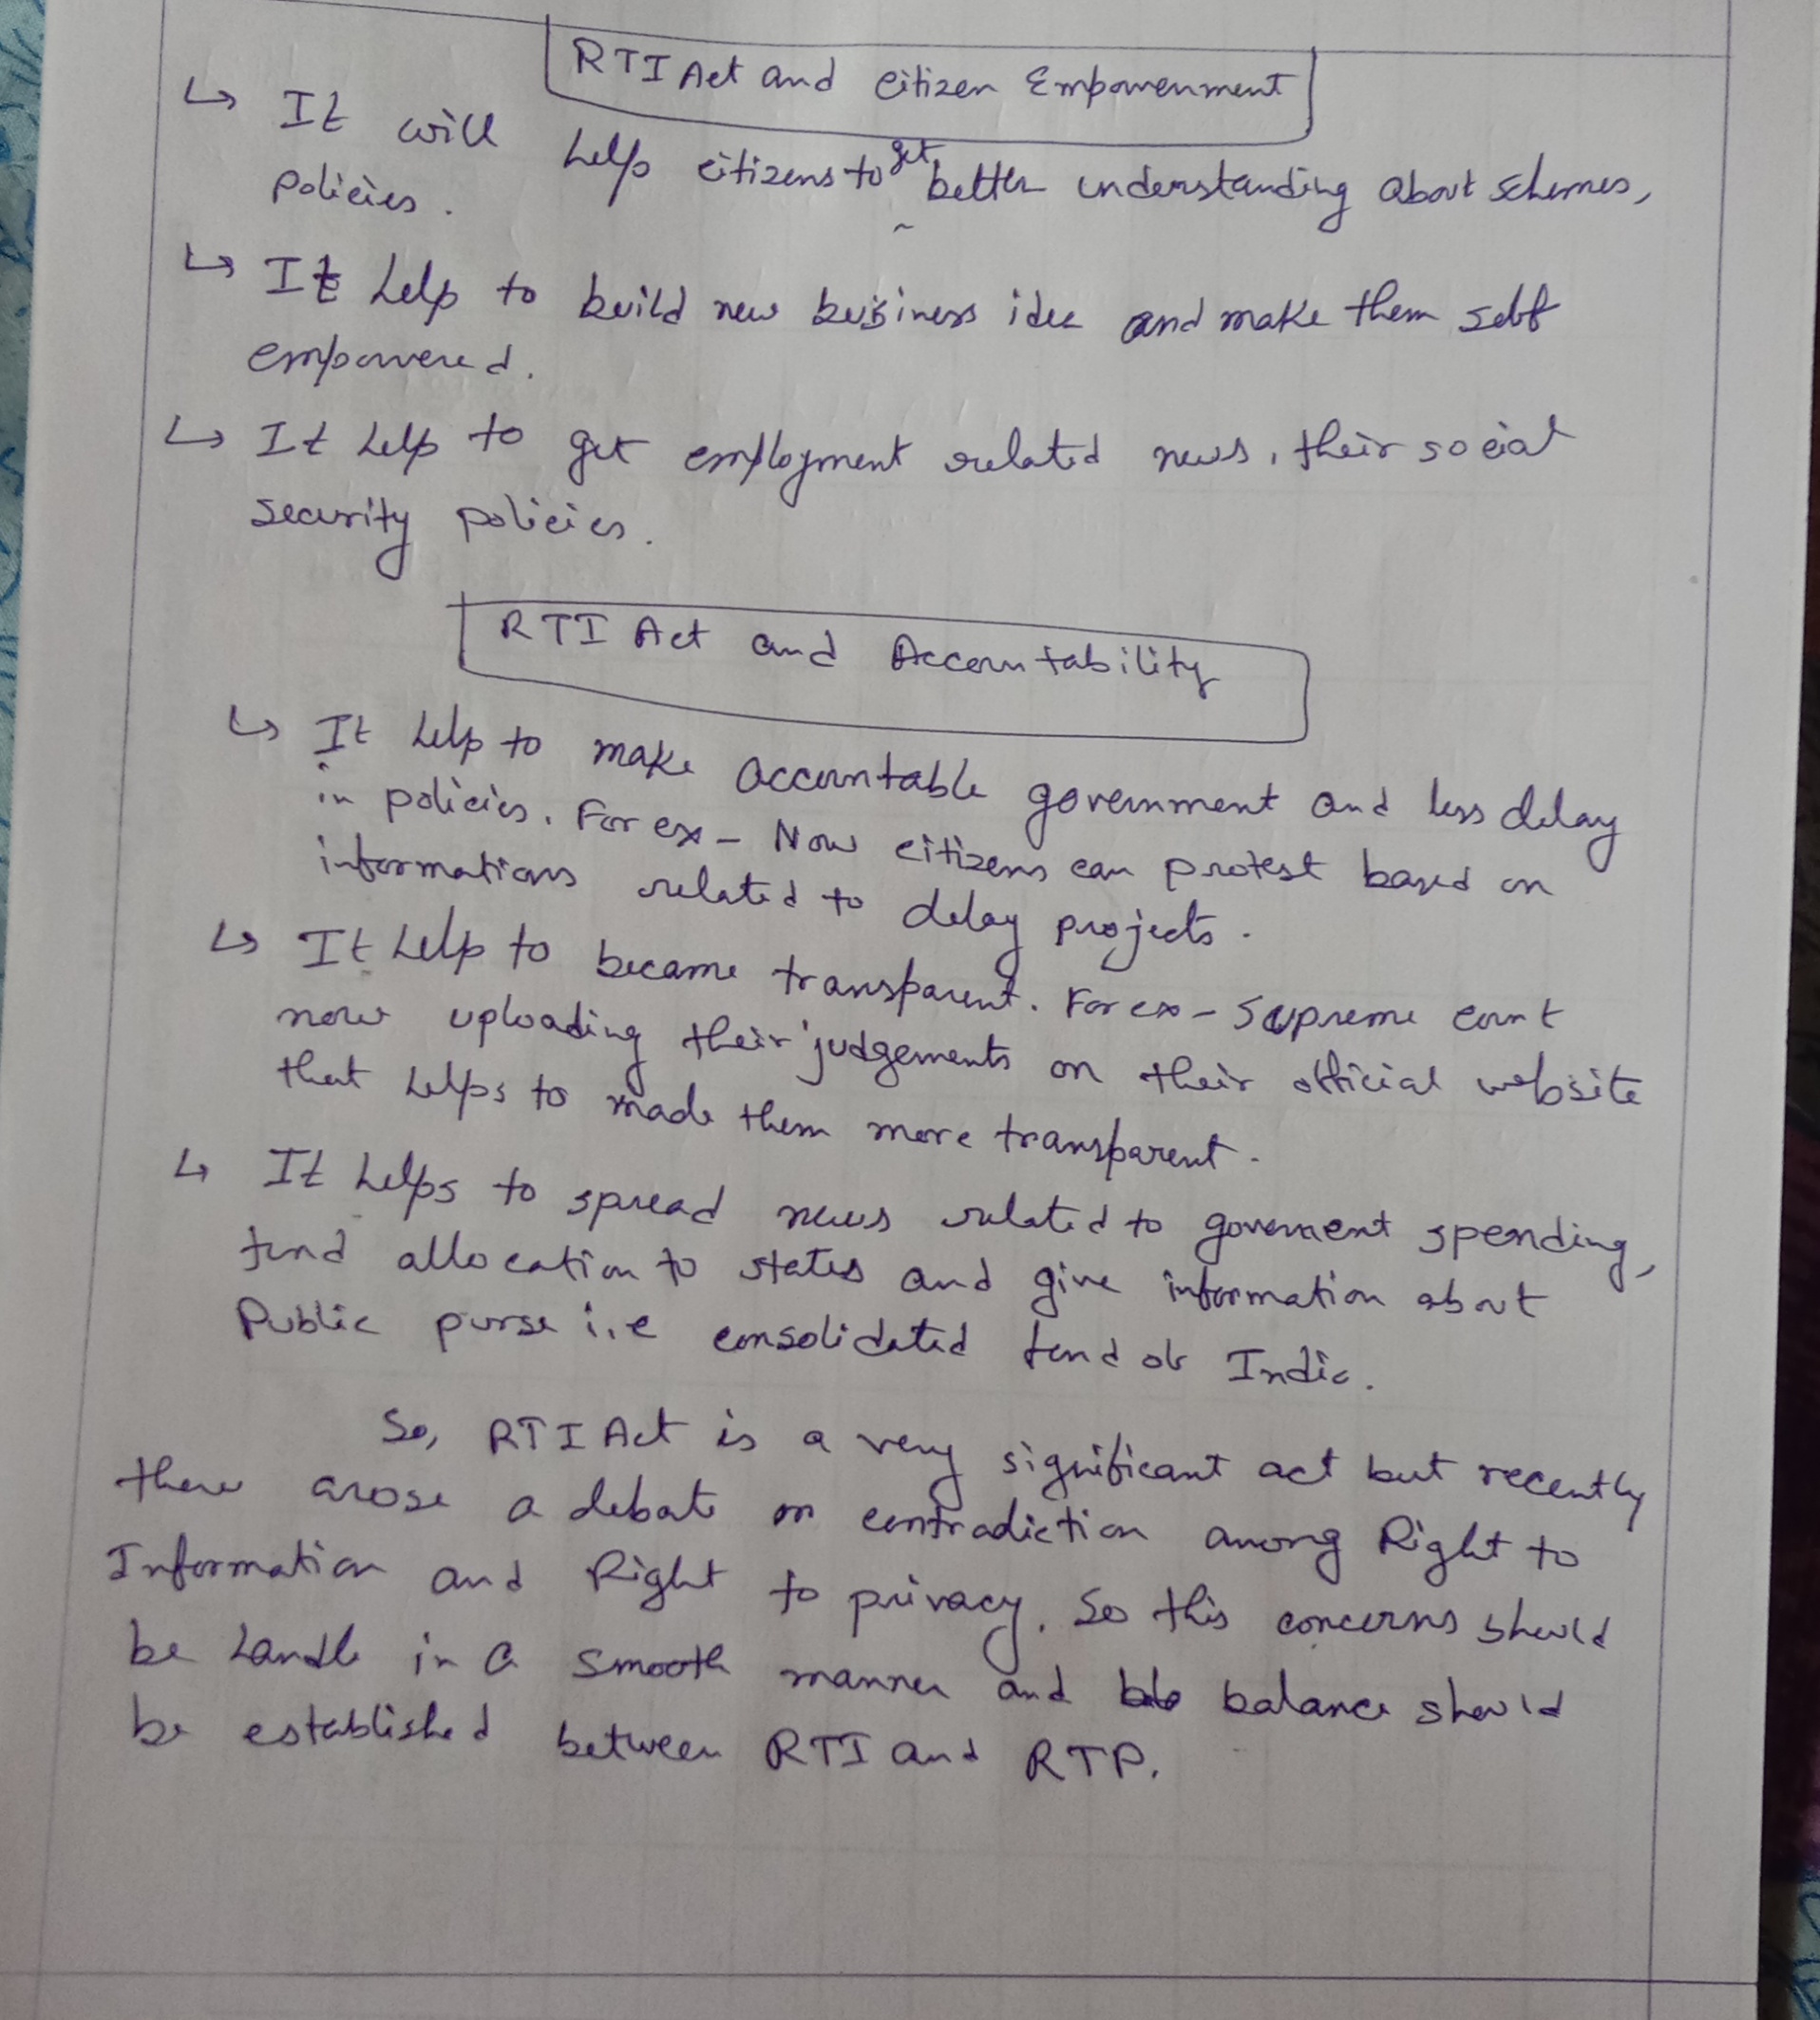 RTI Act and Citizen Empowerment
↳ It will help citizens to get better understanding about schemes,
policies.
↳ It help to build new business idea and make them self
empowered.
↳ It help to get employment related news, their social
security policies.
RTI Act and Accountability
↳ It help to make accountable government and less delay
in policies. For ex - Now citizens can protest based on
informations related to delay projects.
↳ It help to became transparent. For ex - Supreme court
now uploading their judgements on their official website
that helps to made them more transparent.
↳ It helps to spread news related to government spending,
fund allocation to states and give information about
Public purse i.e consolidated fund of India.
So, RTI Act is a very significant act but recently
there arose a debate on contradiction among Right to
Information and Right to privacy. So this concerns should
be handle in a smooth manner and balance should
be established between RTI and RTP.